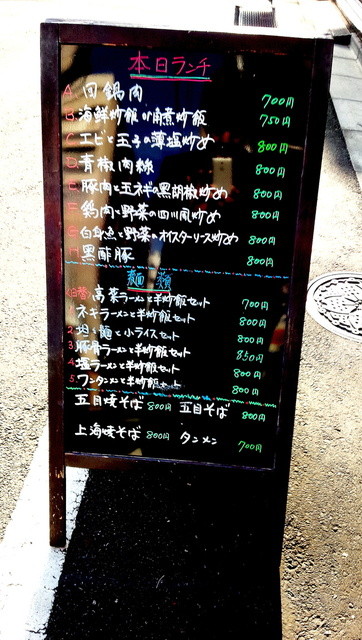 本日ランチ
A. 回鍋肉 700円
B. 海鮮炒飯 750円
C. エビと玉子の薄塩炒め 800円
D. 青椒肉絲 800円
E. 豚肉と玉ネギの黒胡椒炒め 800円
F. 鶏肉と野菜の四川風炒め 800円
G. 白身魚と野菜のオイスターソース炒め 800円
H. 黒酢豚 800円
麺類
高菜ラーメンと半炒飯セット 700円
1. ネギラーメンと半炒飯セット 800円
2. 坦々麺と小ライスセット 800円
3. 豚骨ラーメンと半炒飯セット 850円
4. 塩ラーメンと半炒飯セット 800円
5. ワンタンメンと半炒飯セット 800円
五目焼そば 800円 五目そば 800円
上海焼そば 800円 タンメン 700円